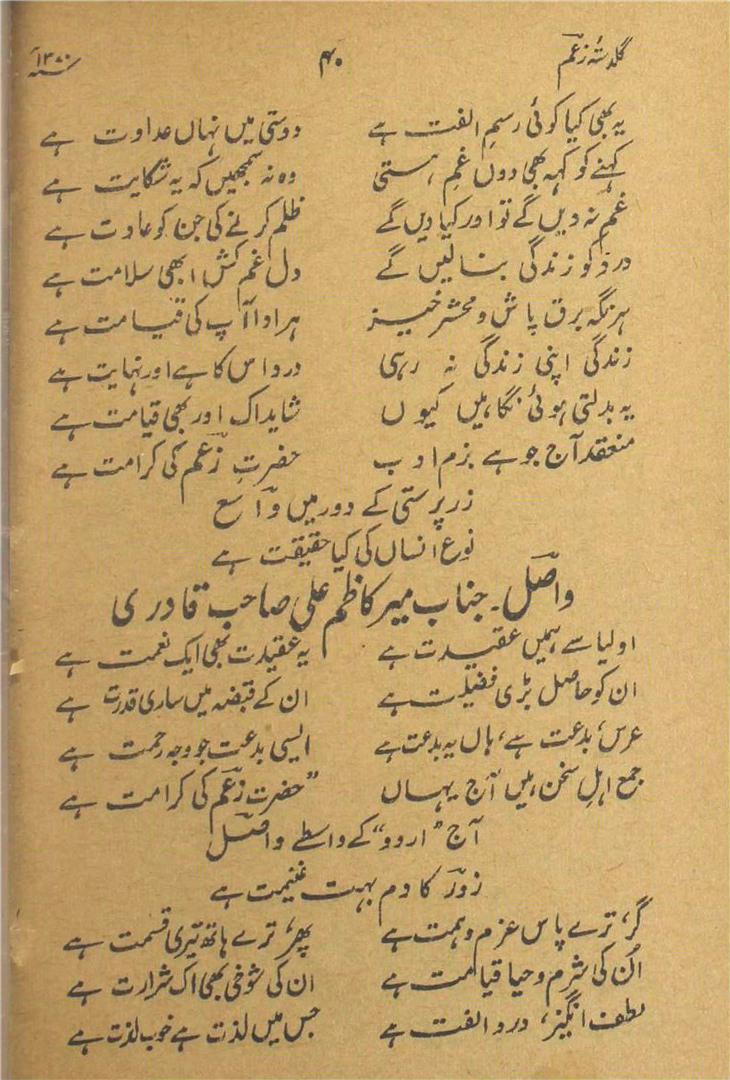 گلدستۂ زعم ۴۰ سنہ ۱۳۷۰
یہ بھی کیا کوئی رسمِ الفت ہے دوستی میں نہاں عداوت ہے
کہنے کو کہہ بھی دوں غمِ ہستی وہ نہ سمجھیں کہ یہ شکایت ہے
غم نہ دیں گے تو اور کیا دیں گے ظلم کرنے کی جن کو عادت ہے
درد کو زندگی بنا لیں گے دل غم کش ابھی سلامت ہے
ہر نگہ برق پاش و محشر خیز ہر ادا آپ کی قیامت ہے
زندگی اپنی زندگی نہ رہی درد اس کا بے اور نہایت ہے
یہ بدلتی ہوئی نگاہیں کیوں شاید اک اور بھی قیامت ہے
منعقد آج جو ہے بزم ادب حضرتِ زعم کی کرامت ہے
زر پرستی کے دور میں واسع
نوع انساں کی کیا حقیقت ہے
واصل۔ جناب میر کاظم علی صاحب قادری
اولیا سے ہمیں عقیدت ہے یہ عقیدت بھی ایک نعمت ہے
ان کو حاصل بڑی فضیلت ہے ان کے قبضہ میں ساری قدرت ہے
عرس، بدعت ہے، ہاں یہ بدعت ہے ایسی بدعت جو وجہ رحمت ہے
جمع اہلِ سخن ہیں آج یہاں "حضرت زعم کی کرامت ہے
آج "اردو" کے واسطے واصل
زور کا دم بہت غنیمت ہے
گر، ترے پاس عزم و ہمت ہے پھر، ترے ہاتھ تیری قسمت ہے
اُن کی شرم و حیا قیامت ہے ان کی شوخی بھی اک شرارت ہے
لطف انگیز، درد الفت ہے جس میں لذت ہے خوب لذت ہے